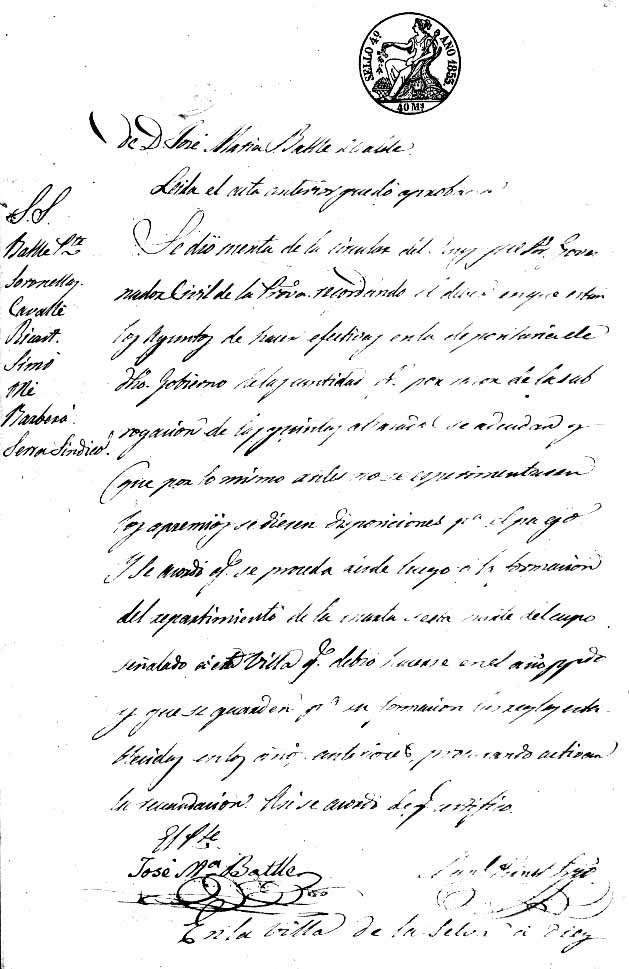 SELLO 4º AÑO 1853.
40 Mª
de D. José Maria Batlle Alcalde.
Leida el acta anterior quedó aprobada
SS.
Batlle Pte
Soronellas.
Cavallé
Ricart.
Simó
Mé
Barberá
Serra Síndico.
Se dió cuenta de la circular del Sor. Gover
nador Civil de la Prova. recordando el deber en que estan
los Ayuntos de hacer efectivas en la depositaria de
dho. Gobierno las cantidad q. por razon de la sub
rogacion de los quintos se adeudan y
que por lo mismo antes no se esperimentasen
los apremios se diesen disposiciones pª el pago
Y se acordó q. se proceda desde luego á la formacion
del repartimiento de la cuarta sesta parte del cupo
señalado á esta Villa q. debió hacerse en el año ppdo
y que se guarden pª su formacion las reglas esta
blecidas en los años anteriores, procurando activar
la recaudacion. Asi se acordó de q. certifico.
El Pte.
José Mª Batlle
En la Villa de la Selva á diez